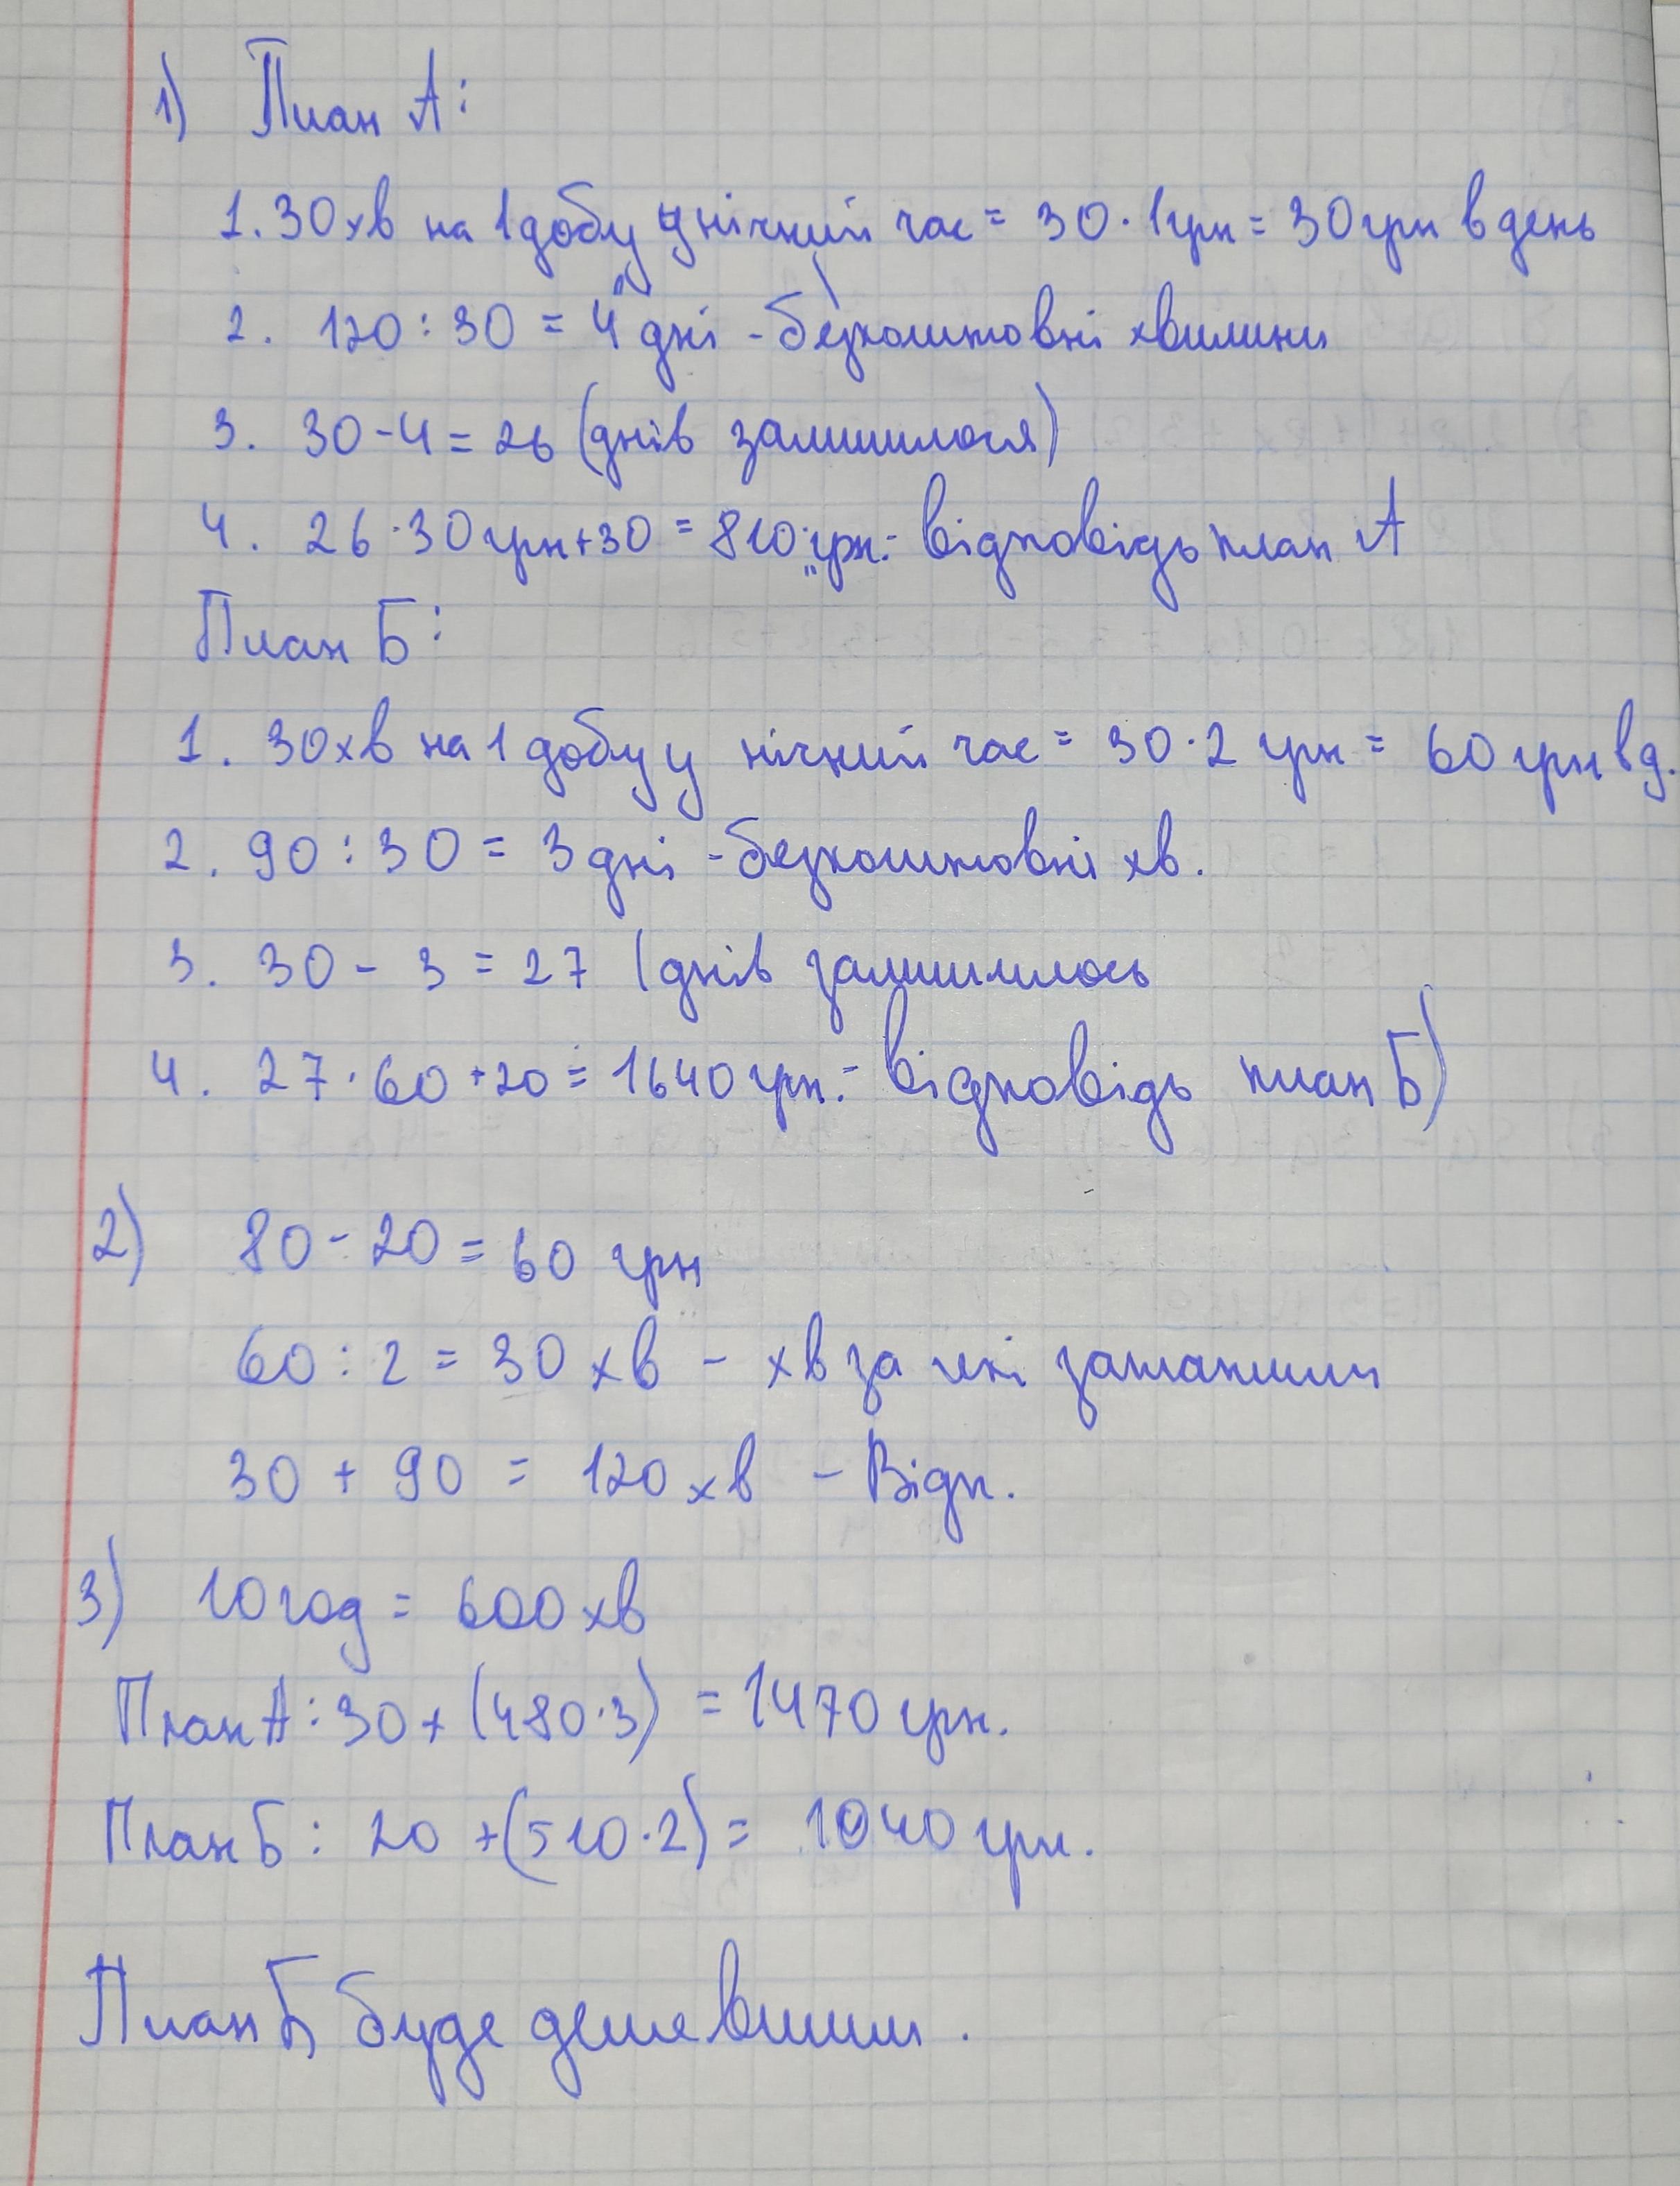 1) План А:
1. 30 хв на 1 добу у нічний час = 30 · 1 грн = 30 грн в день
2. 120 : 30 = 4 дні - безкоштовні хвилини
3. 30 - 4 = 26 (днів залишилося)
4. 26 · 30 грн + 30 = 810 грн. - відповідь план А
План Б:
1. 30 хв на 1 добу у нічний час = 30 · 2 грн = 60 грн в д.
2. 90 : 30 = 3 дні - безкоштовні хв.
3. 30 - 3 = 27 (днів залишилось
4. 27 · 60 + 20 = 1640 грн. - відповідь план Б)
2) 80 - 20 = 60 грн
60 : 2 = 30 хв - хв за які заплатили
30 + 90 = 120 хв - Відп.
3) 10 год = 600 хв
План А: 30 + (480 · 3) = 1470 грн.
План Б: 20 + (510 · 2) = 1040 грн.
План Б буде дешевшим.